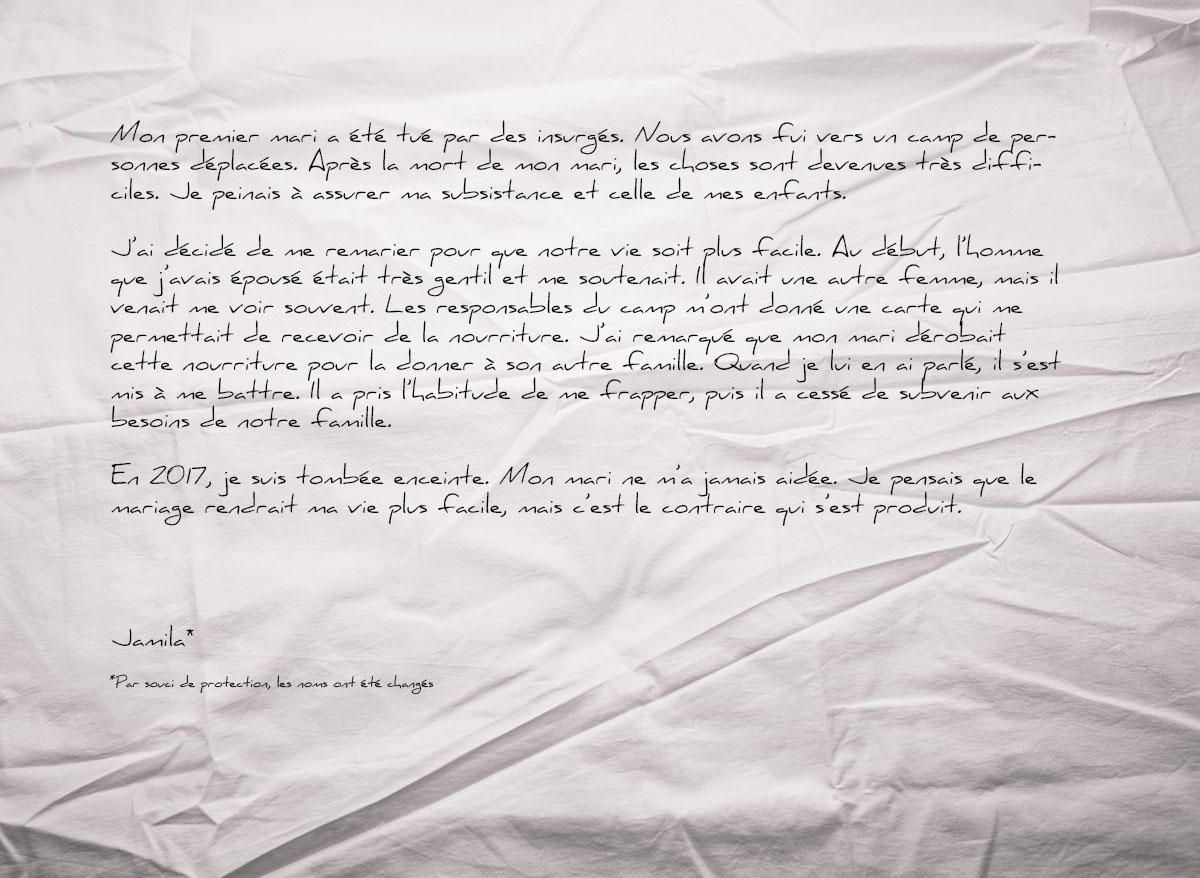 Mon premier mari a été tué par des insurgés. Nous avons fui vers un camp de per-
sonnes déplacées. Après la mort de mon mari, les choses sont devenues très diffi-
ciles. Je peinais à assurer ma subsistance et celle de mes enfants.
J'ai décidé de me remarier pour que notre vie soit plus facile. Au début, l'homme
que j'avais épousé était très gentil et me soutenait. Il avait une autre femme, mais il
venait me voir souvent. Les responsables du camp m'ont donné une carte qui me
permettait de recevoir de la nourriture. J'ai remarqué que mon mari dérobait
cette nourriture pour la donner à son autre famille. Quand je lui en ai parlé, il s'est
mis à me battre. Il a pris l'habitude de me frapper, puis il a cessé de subvenir aux
besoins de notre famille.
En 2017, je suis tombée enceinte. Mon mari ne m'a jamais aidée. Je pensais que le
mariage rendrait ma vie plus facile, mais c'est le contraire qui s'est produit.
Jamila*
*Par souci de protection, les noms ont été changés